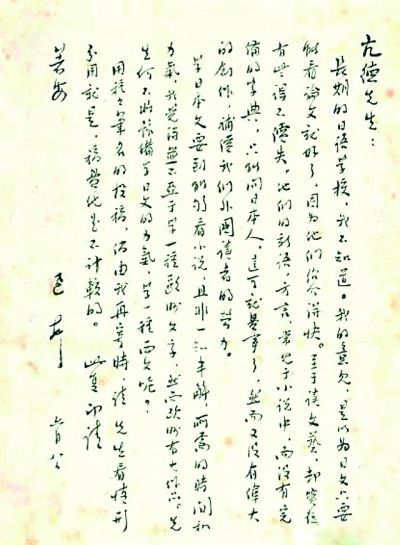 亢德先生：
長期的日語學校，我不知道。我的意見，是以為日文只要
能看論文就好了，因為他們紹介得快。至于讀文藝，却實在
有些得不償失。他們的新語，方言，常見于小說中，而沒有完
備的字典，只能問日本人，這可就費事了，然而又沒有偉大
的創作，補償我們外國讀者的勞力。
學日本文要到能夠看小說，且非一知半解，所需的時間和
力氣，我覺得並不亞于學一種歐洲文字，然而歐洲有大作品。先
生何不將豫備學日文的力氣，學一種西文呢？
用種々筆名的投稿，倘由我再寄時，請 先生看情形
分用就是，稿費他是不計較的。 此复 即請
著安
迅 上 六月八日